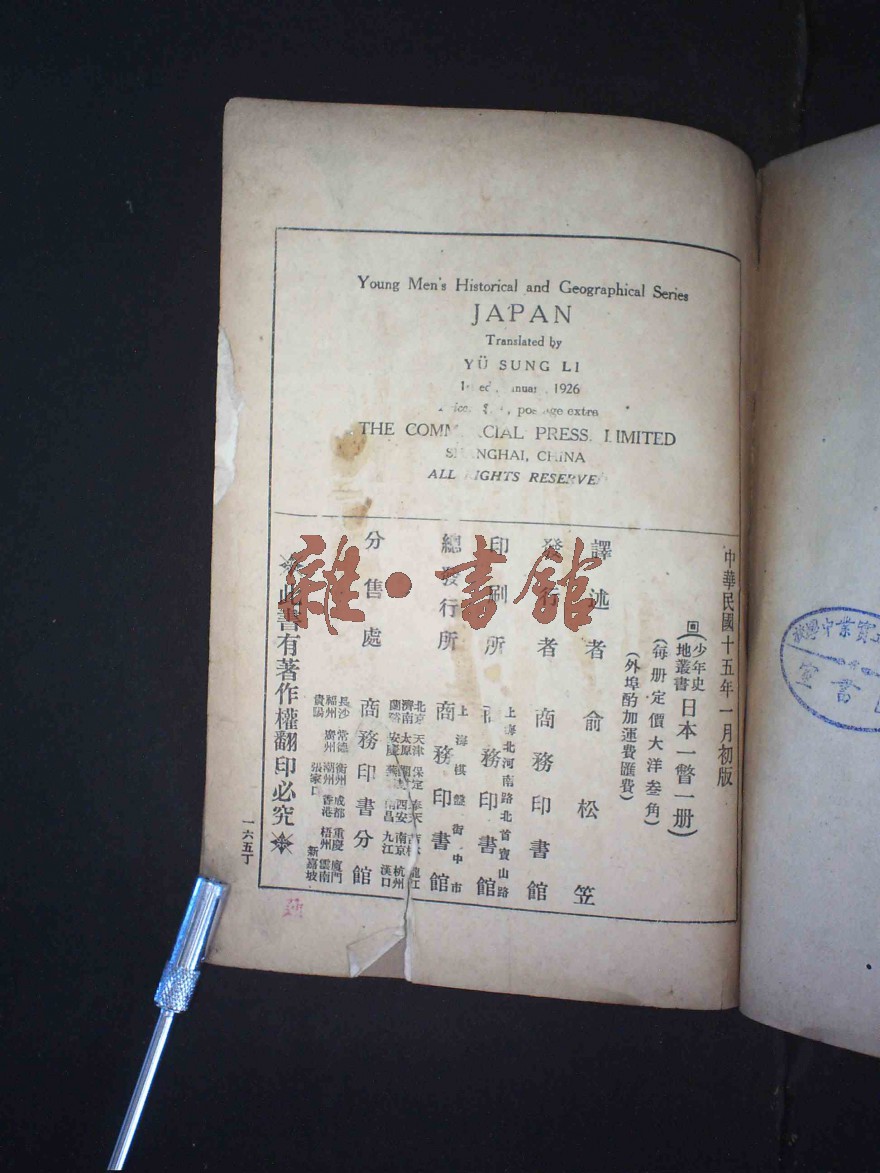 Young Men's Historical and Geographical Series
JAPAN
Translated by
YÜ SUNG LI
1926
postage extra
THE COMMERCIAL PRESS, LIMITED
SHANGHAI, CHINA
ALL RIGHTS RESERVED
中華民國十五年一月初版
(少年史
地叢書 日本一瞥一册)
(每册定價大洋叁角)
(外埠酌加運費匯費)
譯述者 俞松笠
發行者 商務印書館
印刷所 商務印書館
上海北河南路北首寶山路
總發行所 商務印書館
上海棋盤街中市
分售處 商務印書分館
北京 天津 保定 奉天 龍江
濟南 太原 西安 南京 杭州
蘭谿 安慶 南昌 九江 漢口
長沙 常德 衡州 成都 重慶 廈門
福州 廣州 潮州 香港 梧州 雲南
貴陽 張家口 新嘉坡
此書有著作權翻印必究
一六五丁
雜·書館
實業中學校
書室